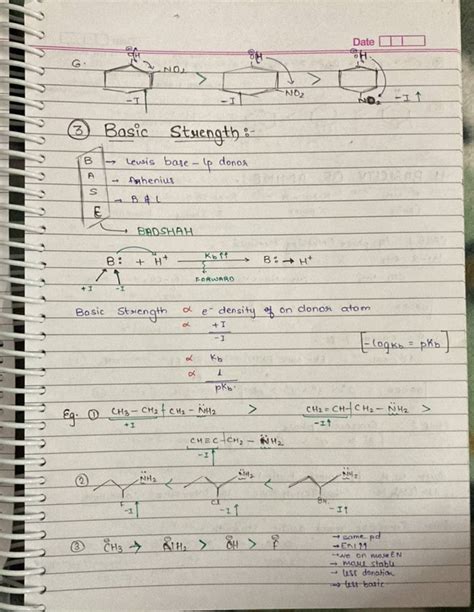 Date
6. OH NO2 > OH NO2 > OH NO2
-I -I -I↑
③ Basic Strength:-
B → Lewis base - lp donor
A → Arhenius
S → B & L
E
→ BADSHAH
B: + H+ Kb↑↑ B: → H+
FORWARD
+I -I
Basic Strength ∝ e- density of on donor atom
∝ +I
-I
∝ Kb [-logKb = pKb]
∝ 1
pKb
Eg. ① CH3-CH2-CH2-NH2 > CH2=CH-CH2-NH2 >
+I -I↑
CH≡C-CH2-NH2
-I↑
② NH2 < NH2 < NH2
F Cl Br
-I↑ -I↑ -I↑
③ CH3 > NH2 > OH > F
→ same pd
→ EN↑↑
→ -ve on more EN
→ more stable
→ less donation
→ less basic